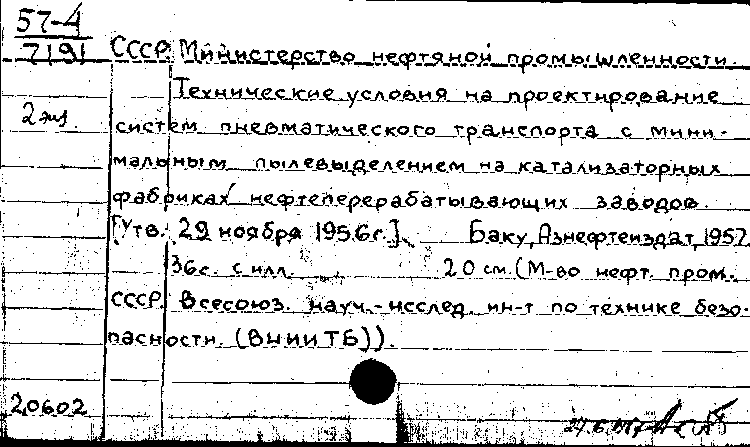 57-4
7191
СССР. Министерство нефтяной промышленности.
Технические условия на проектирование
2 экз.
систем пневматического транспорта с мини-
мальным пылевыделением на катализаторных
фабриках нефтеперерабатывающих заводов.
[Утв. 29 ноября 1956г.]. Баку, Азнефтеиздат, 1957.
36с. с илл. 20 см. (М-во нефт. пром.
СССР. Всесоюз. науч.-исслед. ин-т по технике безо-
пасности. (ВНИИТБ)).
20602